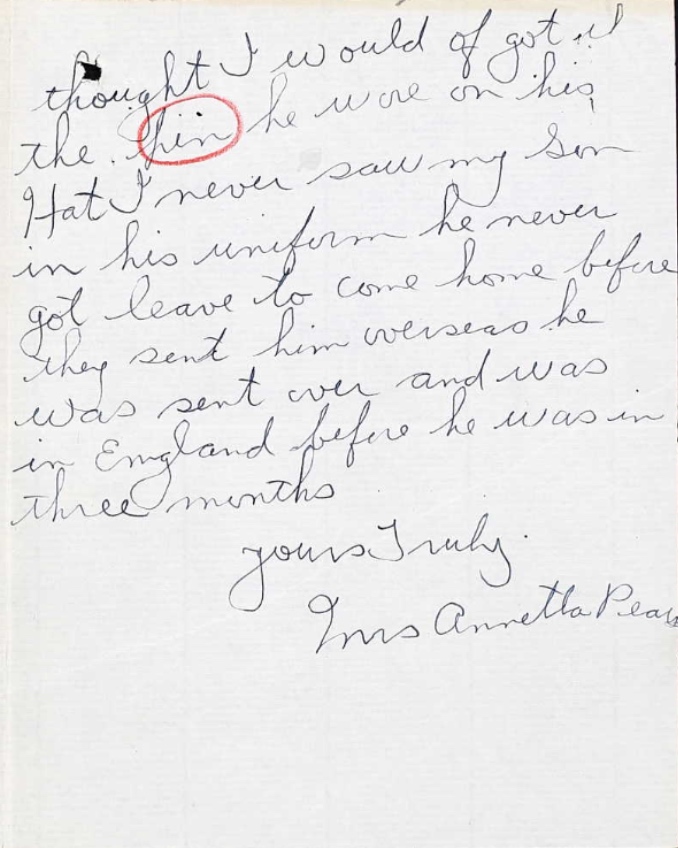 thought I would of got it
the pin he wore on his
Hat I never saw my son
in his uniform he never
got leave to come home before
they sent him overseas he
was sent over and was
in England before he was in
three months
yours Truly.
Mrs Annetta